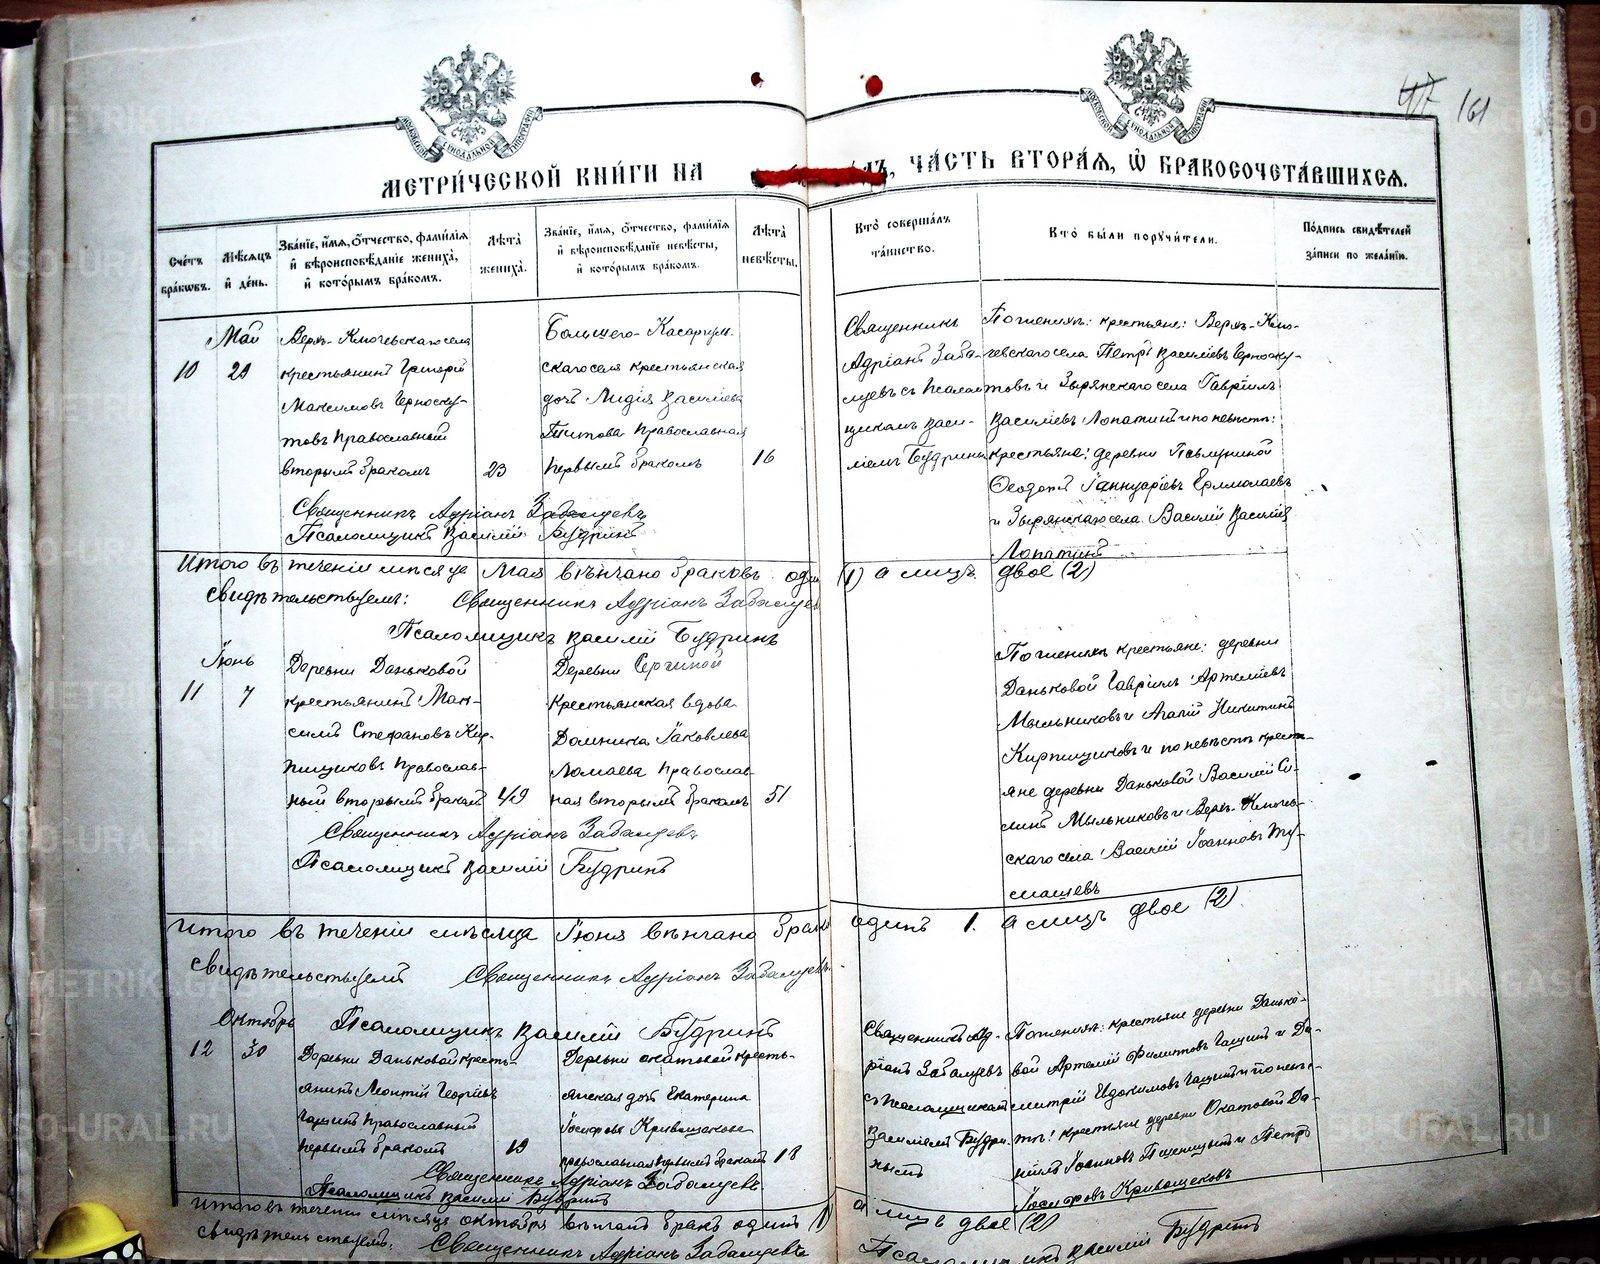 161
МЕТРИ́ЧЕСКОЙ КНИ́ГИ НА
ДЪ, ЧА́СТЬ ВТОРА́Я, Ѿ БРАКОСОЧЕТА́ВШИХСЯ.
Сче́тъ бра́кѡвъ.
Мѣ́сяцъ и҆ де́нь.
Зва́нїе, и҆́мя, ѻ҆́тчество, фами́лїя
и҆ вѣроисповѣ́данїе жениха̀,
и҆ кото́рымъ бра́комъ.
Лѣ́та жениха̀.
Зва́нїе, и҆́мя, ѻ҆́тчество, фами́лїя
и҆ вѣроисповѣ́данїе невѣ́сты,
и҆ кото́рымъ бра́комъ.
Лѣ́та невѣ́сты.
Кто̀ соверша́лъ
та́инство.
Кто̀ бы́ли поручи́тели.
По́дпись свидѣ́телей
за́писи по жела́нїю.
10
Май
29
Верхъ-Ключевскаго села
крестьянинъ Григорій
Максимовъ Черноску-
товъ православный
вторымъ бракомъ
23
Больше-Касаргуль-
скаго села крестьянская
дочь Лидія Василіева
Титова православная
первымъ бракомъ
16
Священникъ
Адріанъ Заба-
луевъ съ псалом-
щикомъ Васи-
ліемъ Будринымъ
По женихѣ: крестьяне: Верхъ-Клю-
чевскаго села Петръ Василіевъ Черноску-
товъ и Зырянскаго села Гавріилъ
Василіевъ Лопатинъ и по невѣстѣ:
крестьяне: деревни
Ѳеодотъ Іаннуаріевъ Ермолаевъ
и Зырянскаго села Василій Василіевъ
Лопатинъ
Священникъ Адріанъ Забалуевъ
Псаломщикъ Василій Будринъ
Итого въ теченіи мѣсяца Мая вѣнчано браковъ одинъ (1) а лицъ двое (2)
свидѣтельствуемъ: Священникъ Адріанъ Забалуевъ
Псаломщикъ Василій Будринъ
11
Іюнь
7
Деревни Даньковой
крестьянинъ Мак-
симъ Стефановъ Кир-
пищиковъ православ-
ный вторымъ бракомъ
49
Деревни Сергиной
крестьянская вдова
Домника Іаковлева
Ломаева православ-
ная вторымъ бракомъ
51
По женихѣ крестьяне: деревни
Даньковой Гавріилъ Артеміевъ
Мыльниковъ и Агапій Никитинъ
Кирпищиковъ и по невѣстѣ кресть-
яне деревни Даньковой Василій Си-
линъ Мыльниковъ и Верхъ-Ключев-
скаго села Василій Іоанновъ Ту-
машевъ
Священникъ Адріанъ Забалуевъ
Псаломщикъ Василій Будринъ
Итого въ теченіи мѣсяца Іюня вѣнчано браковъ одинъ 1. а лицъ двое (2).
свидѣтельствуемъ Священникъ Адріанъ Забалуевъ
Псаломщикъ Василій Будринъ
12
Октябрь
30
Деревни Даньковой кресть-
янинъ Леонтій Георгіевъ
Чащинъ православный
первымъ бракомъ
19
Деревни Окатовой кресть-
янская дочь Екатерина
Іосифова Кривощекова
православная первымъ бракомъ
18
Священникъ Ад-
ріанъ Забалуевъ
съ псаломщикомъ
Василіемъ Будри-
нымъ
По женихѣ: крестьяне деревни Данько-
вой Артемій Филиповъ Чащинъ и Ди-
митрій Евдокимовъ Чащинъ и по невѣ-
стѣ: крестьяне деревни Окатовой Да-
ніилъ Іоанновъ Пшеницынъ и Петръ
Іосифовъ Кривощековъ
Священникъ Адріанъ Забалуевъ.
Псаломщикъ Василій Будринъ
Итого въ теченіи мѣсяца Октября вѣнчано бракъ одинъ (1) а лицъ двое (2)
свидѣтельствуемъ: Священникъ Адріанъ Забалуевъ
Псаломщикъ Василій Будринъ